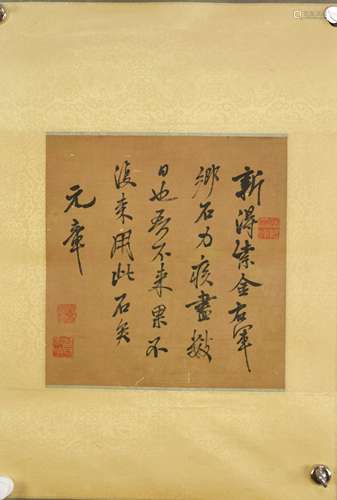 新得紫金右軍
鄉石力疾書數
日也吾不来果不
復来用此石矣
元章